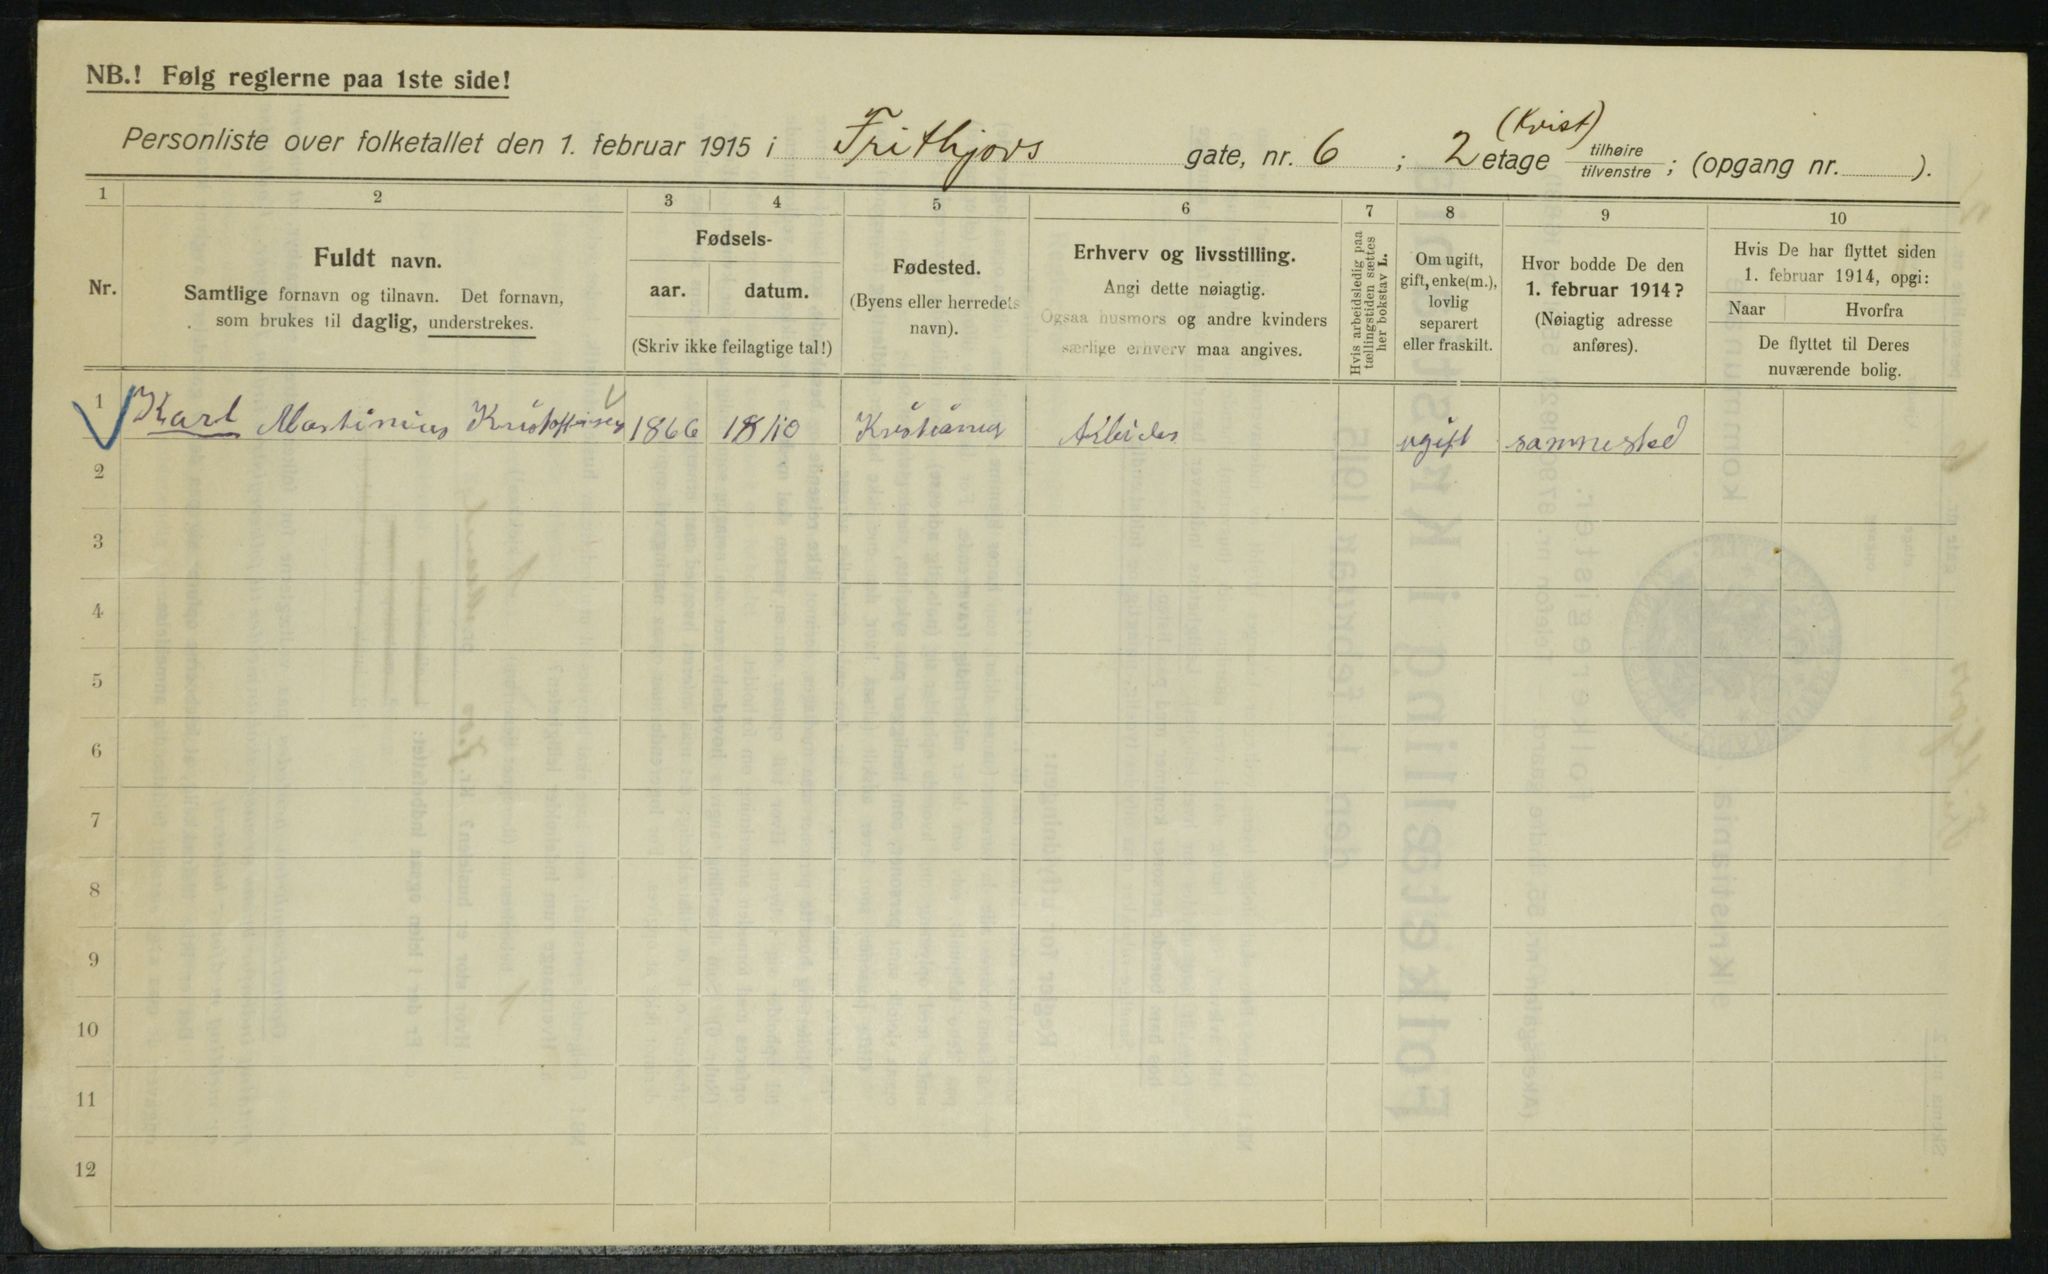 NB.! Følg reglerne paa 1ste side!
(Kvist)
Personliste over folketallet den 1. februar 1915 i Frithjovs gate, nr. 6 ; 2 etage tilhøire tilvenstre ; (opgang nr. ).
1 2 3 4 5 6 7 8 9 10
Nr.
Fuldt navn.
Samtlige fornavn og tilnavn. Det fornavn,
som brukes til daglig, understrekes.
Fødsels-
aar. datum.
(Skriv ikke feilagtige tal!)
Fødested.
(Byens eller herredets
navn).
Erhverv og livsstilling.
Angi dette nøiagtig.
Ogsaa husmors og andre kvinders
særlige erhverv maa angives.
Hvis arbeidsledig paa
tællingstiden sættes
her bokstav L.
Om ugift,
gift, enke(m.),
lovlig
separert
eller fraskilt.
Hvor bodde De den
1. februar 1914?
(Nøiagtig adresse
anføres).
Hvis De har flyttet siden
1. februar 1914, opgi:
Naar Hvorfra
De flyttet til Deres
nuværende bolig.
1 Karl Martinius Kristoffersen 1866 18/10 Kristiania Arbeider ugift sammested
2
3
4
5
6
7
8
9
10
11
12